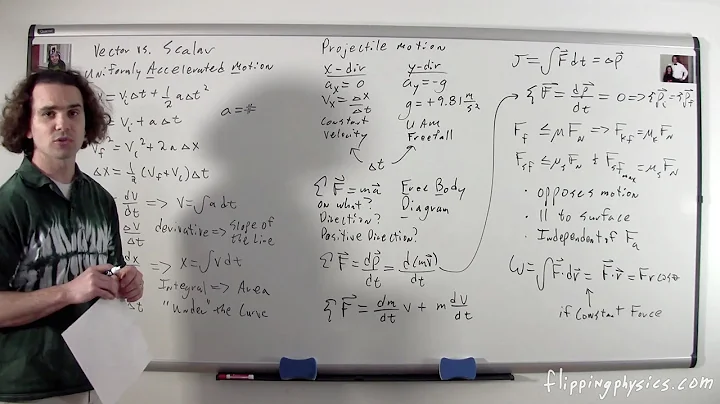 Vector vs. Scalar
Uniformly Accelerated Motion
= V_i Δt + 1/2 a Δt²
= V_i + a Δt
V_f² = V_i² + 2a Δx
Δx = 1/2 (V_f + V_i) Δt
dV/dt => V = ∫a dt
ΔV/Δt derivative => slope of the Line
dx => x = ∫v dt
Integral => Area "under" the Curve
Δt
a =
Projectile Motion
x-dir y-dir
a_x = 0 a_y = -g
V_x = Δx/Δt g = +9.81 m/s²
Constant Velocity
UAM Freefall
Δt
Σ F⃗ = m a⃗ Free Body Diagram
on what?
Direction?
Positive Direction?
Σ F⃗ = dp⃗/dt = d(mv⃗)/dt
Σ F⃗ = dm/dt v + m dv/dt
J = ∫F⃗ dt = Δp⃗
Σ F⃗ = dp⃗/dt = 0 => Σp⃗_i = Σp⃗_f
F_f ≤ μ F_N => F_kf = μ_k F_N
F_sf ≤ μ_s F_N & F_sf_max = μ_s F_N
· opposes motion
· || to surface
· Independent of F_a
W = ∫F⃗·dr⃗ = F⃗·r⃗ = F r cos θ
if Constant Force
flippingphysics.com